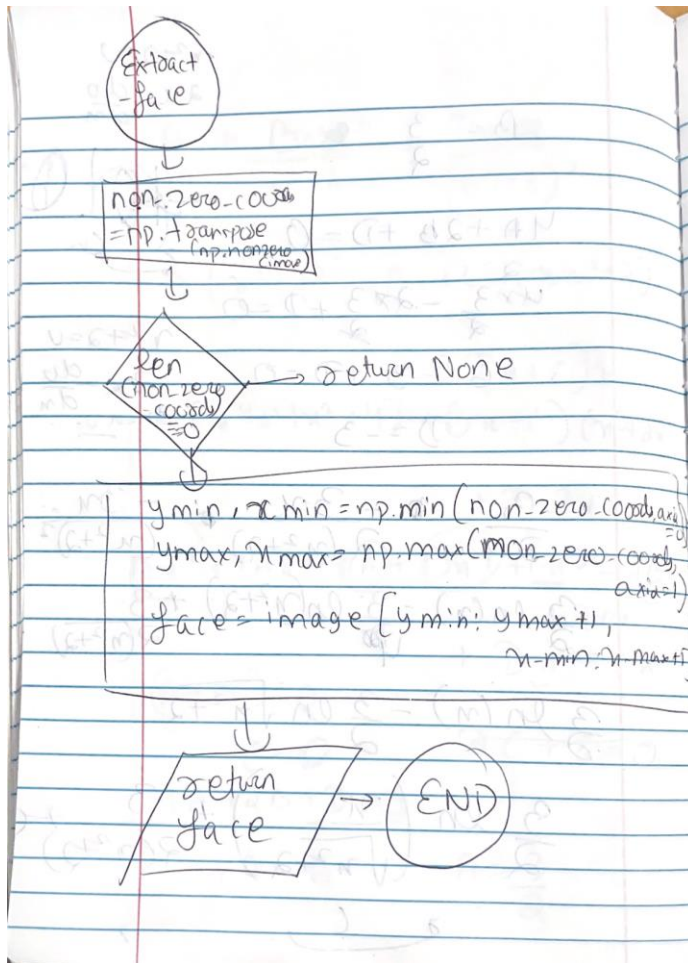 Extract
-face
non-zero-coords
=np.transpose
(np.nonzero
(image)
len
(non-zero
-coords)
==0
return None
ymin, xmin = np.min(non-zero-coords, axis
=0)
ymax, xmax = np.max(non-zero-coords,
axis=1)
face = image [ymin: ymax+1,
x-min: x-max+1]
return
face
END